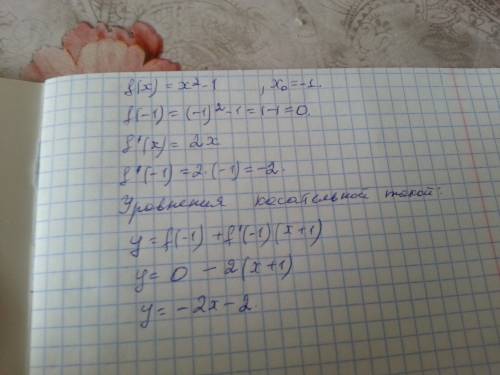 f(x) = x²-1 , x₀=-1.
f(-1) = (-1)²-1 = 1-1 = 0.
f'(x) = 2x
f'(-1) = 2·(-1) = -2.
Уровнения касательной такой:
y = f(-1) + f'(-1)(x+1)
y = 0 - 2(x+1)
y = -2x-2.